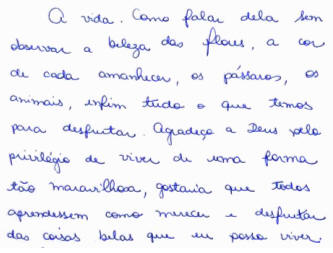 A vida. Como falar dela sem
observar a beleza das flores, a cor
de cada amanhecer, os pássaros, os
animais, enfim tudo o que temos
para desfrutar. Agradeço a Deus pelo
privilégio de viver de uma forma
tão maravilhosa, gostaria que todos
aprendessem como merecer e desfrutar
das coisas belas que eu posso viver.